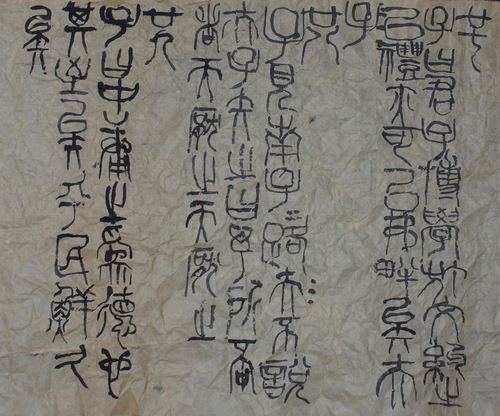 廿七
子曰君子博學於文約之
以禮亦可以弗畔矣夫
子
廿八
子見南子〻路夫不說
夫子矢之曰予所否
者天厭之天厭之
廿九
子曰中庸之為德也
其至矣乎民鮮久
矣